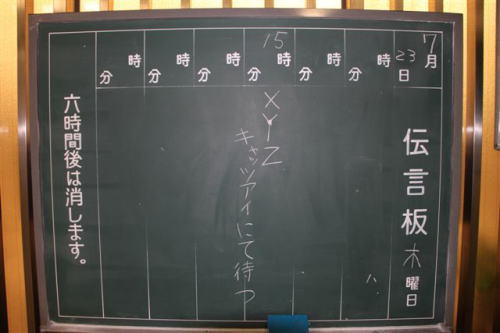 7月
23日
伝言板
木曜日
時 分
時 分
15時 分
時 分
時 分
時 分
XYZ
キャッツアイにて待つ
六時間後は消します。